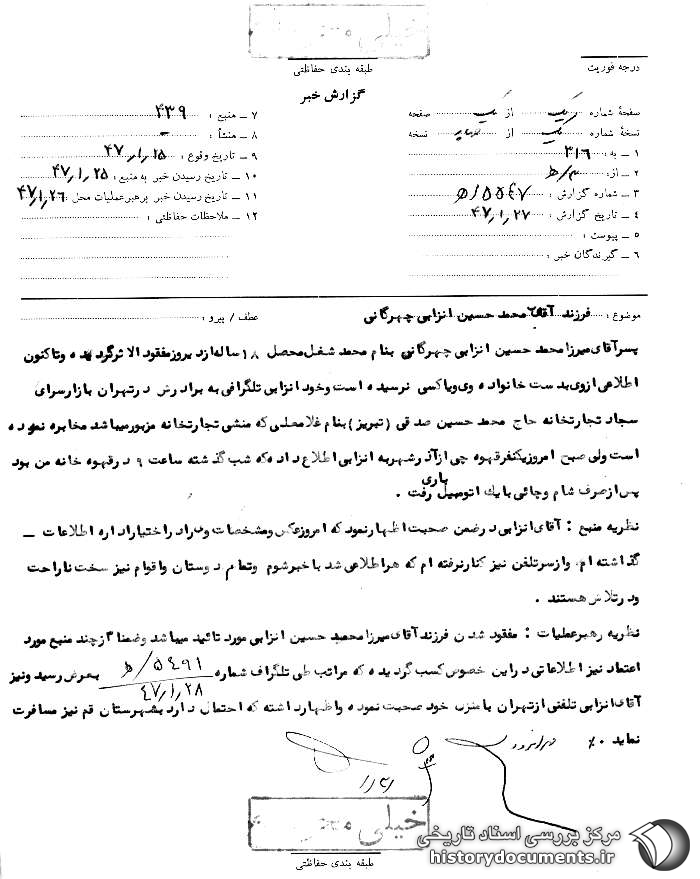 خیلی محرمانه
درجه فوریت
طبقه بندی حفاظتی
گزارش خبر
صفحهٔ شماره یک از یک صفحه
نسخهٔ شماره یک از نسخه
۱ ــ به : ۳۱۶
۲ ــ از : ۳/ھ
۳ ــ شماره گزارش : ۵۵۴۷/ھ
۴ ــ تاریخ گزارش : ۴۷/۱/۲۷
۵ ــ پیوست :
۶ ــ گیرندگان خبر :
۷ ــ منبع : ۴۳۹
۸ ــ منشأ : -
۹ ــ تاریخ وقوع : ۴۷/۱/۲۵
۱۰ ــ تاریخ رسیدن خبر به منبع : ۴۷/۱/۲۵
۱۱ ــ تاریخ رسیدن خبر برهبر عملیات محل : ۴۷/۱/۲۶
۱۲ ــ ملاحظات حفاظتی :
موضوع : فرزند آقای محمد حسین انزابی چهرگانی
عطف / پیرو :
پسرآقای میرزا محمد حسین انزابی چهرگانی بنام محمد شغل محصل ۱۸ ساله ازد یروز مفقود الاثرگرد یده وتاکنون
اطلاعی ازوی بدست خانواده وی ویاکسی نرسیده است وخود انزابی تلگرافی به برادرش درتهران بازارسرای
سجاد تجارتخانه حاج محمد حسین صدقی (تبریز) بنام غلامعلی که منشی تجارتخانه مزبورمیباشد مخابره نموده
است ولی صبح امروزیکنفرقهوه چی ازآذرشهربه انزابی اطلاع داده که شب گذشته ساعت ۹ درقهوه خانه من بود
پس ازصرف شام وچائی بایك اتومبیل باری رفت .
نظریه منبع : آقای انزابی درضمن صحبت اظهارنمود که امروزعکس ومشخصات وی را دراختیاراداره اطلاعات ــ
گذاشته ام، وازسرتلفن نیز کنارنرفته ام که هراطلاعی شد باخبرشوم وتمام دوستان واقوام نیز سخت ناراحت
ودرتلاش هستند .
نظریه رهبرعملیات : مفقود شدن فرزند آقای میرزا محمد حسین انزابی مورد تائید میباشد وضمنا ازچند منبع مورد
اعتماد نیز اطلاعاتی دراین خصوص کسب گردیده که مراتب طی تلگراف شماره ۵۴۹۱/ھ ۴۷/۱/۲۸ بعرض رسید ونیز
آقای انزابی تلفنی ازتهران با منزل خود صحبت نموده واظهارداشته که احتمال دارد بشهرستان قم نیز مسافرت
نماید .
خیلی محرمانه
طبقه بندی حفاظتی
مرکز بررسی اسناد تاریخی
historydocuments.ir